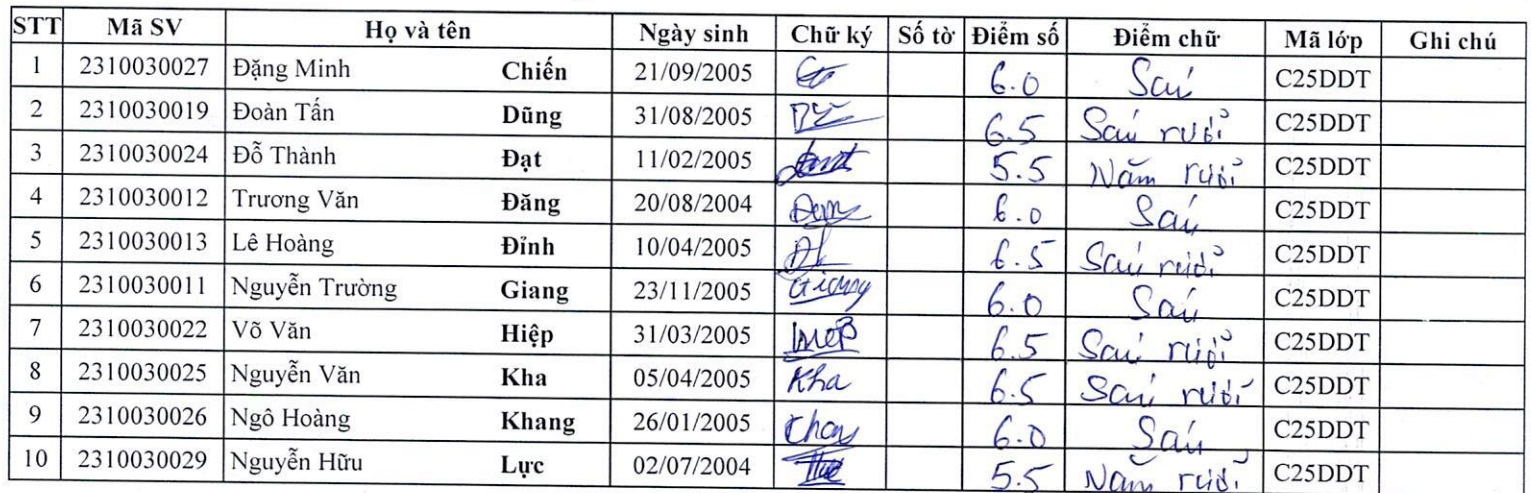 STT Mã SV Họ và tên Ngày sinh Chữ ký Số tờ Điểm số Điểm chữ Mã lớp Ghi chú
1 2310030027 Đặng Minh Chiến 21/09/2005 6.0 Sáu C25DDT
2 2310030019 Đoàn Tấn Dũng 31/08/2005 6.5 Sáu rưỡi C25DDT
3 2310030024 Đỗ Thành Đạt 11/02/2005 5.5 Năm rưỡi C25DDT
4 2310030012 Trương Văn Đăng 20/08/2004 6.0 Sáu C25DDT
5 2310030013 Lê Hoàng Đỉnh 10/04/2005 6.5 Sáu rưỡi C25DDT
6 2310030011 Nguyễn Trường Giang 23/11/2005 Giang 6.0 Sáu C25DDT
7 2310030022 Võ Văn Hiệp 31/03/2005 6.5 Sáu rưỡi C25DDT
8 2310030025 Nguyễn Văn Kha 05/04/2005 Kha 6.5 Sáu rưỡi C25DDT
9 2310030026 Ngô Hoàng Khang 26/01/2005 6.0 Sáu C25DDT
10 2310030029 Nguyễn Hữu Lực 02/07/2004 5.5 Năm rưỡi C25DDT